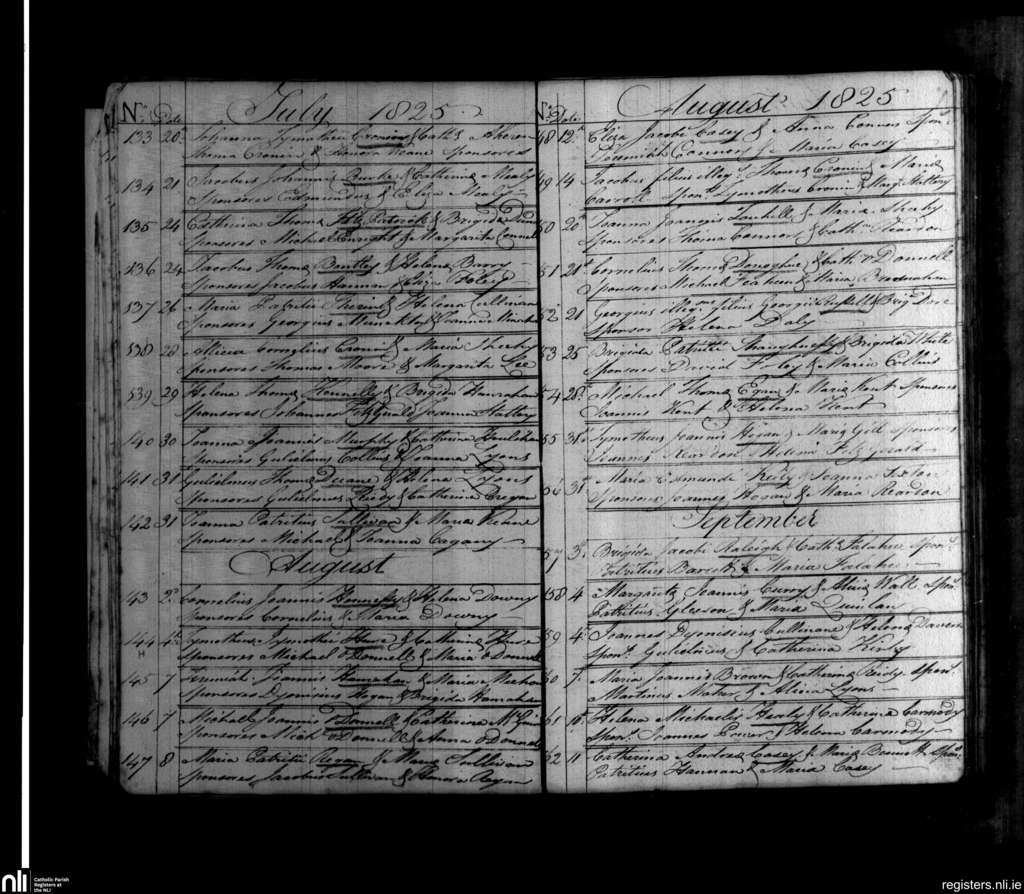 No. Date July 1825
133 20 Johanna Tymothei Cronin & Cath Aheron
Thoma Cronin & Honora Keane sponsores
134 21 Jacobus Johannis Burke & Catherina Mealy
Sponsores Edmundus & Eliza
135 24 Catherina Thoma Fitz Patrick & Brigida
Sponsores Michael Enright & Margarita Connell
136 24 Jacobus Thoma Bentley & Helena Barry
Sponsores Jacobus Hannan & Eliza Foley
137 26 Maria Patritii & Helena Cullinan
Sponsores Georgius & Joannis
138 28 Alicia Cornelius Cronin & Maria Sheehy
Sponsores Thomas Moore & Margarita Lee
139 29 Helena Thoma & Brigida Hanrahan
Sponsores Johannes FitzGerald Joanna Slattery
140 30 Joanna Joannis Murphy & Catherina Houlihan
Sponsores Gulielmus Collins & Joanna Lyons
141 31 Gulielmus Thoma Deane & Helena Lyons
Sponsores Gulielmus & Catherina Cregan
142 31 Joanna Patritius Sullivan & Maria Keane
Sponsores Michael & Joanna
August
43 2 Cornelius Joannis Hennessy & Helena Downy
Sponsores Cornelius & Maria Downy
144 4 Tymotheus Tymothei & Catherina
Sponsores Michael O'Donnell & Maria O'Donnell
145 7 Jeremiah Joannis Hanrahan & Maria Meehan
Sponsores Dyonisius Hogan & Brigida Hanrahan
146 7 Michael Joannis O'Donnell & Catherina
Sponsores Mich O'Donnell & Anna O'Donnell
147 8 Maria Patritii Regan & Maria Sullivan
Sponsores Jacobus Sullivan & Honora Regan
No. Date August 1825
48 12 Eliza Jacobi Casey & Anna Connor Spon.
Jeremiah Connors & Maria Casey
49 14 Jacobus filius illeg. Thoma Cronin & Maria
Carroll Spon. Tymotheus Cronin & Marg. Slattery
50 20 Joanna Francis & Maria Sheehy
Sponsores Thoma Connors & Cath Reardon
51 21 Cornelius Thoma Donoghue & Cath O'Donnell
Sponsores Michael & Maria
52 21 Georgius illeg. filius Georgii & Brig
Sponsor Helena Daly
53 25 Brigida Patritii Shaughnessy & Brigida White
Sponsores David Foley & Maria Collins
54 28 Michael Thoma Egan & Maria Kent Sponsores
Joannis Kent & Helena Kent
55 31 Tymotheus Joannis Hogan & Maria Gill Sponsores
Joannes Reardon & Helena Fitzgerald
56 31 Maria Edmundi & Joanna Sexton
Sponsores Joannes Hogan & Maria Reardon
September
57 3 Brigida Jacobi Raleigh & Cath Falahee Spon
Patritius Barrett & Maria Falahee
158 4 Margarita Joannis Curry & Alicia Wall Spon
Patritius Gleeson & Maria Quinlan
59 4 Joannes Dyonisius Cullinane & Helena
Spon. Gulielmus & Catherina Kirby
60 7 Maria Joannis Brown & Catherina Reidy Spon
Martinus & Alicia Lyons
61 Helena Michaelis Healy & Catherina Carmody
Spon. Joannes Power & Helena Carmody
62 11 Catherina Andrea Casey & Maria Spon
Patritius Hannan & Maria Casey
nli Catholic Parish
Registers at
the NLI
registers.nli.ie